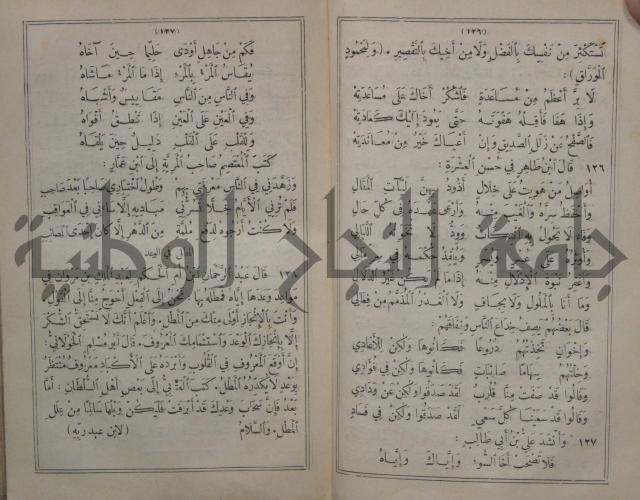 (١٣٦)
تستكثر من نفسك بالفضل ولا من أخيك بالتقصير . (ولمحمود
الوراق) :
لا بر أعظم من مساعدة فاشكر أخاك على مساعدته
وإذا هفا فأقله هفوته حتى يعود إليك كعادته
فالصفح عن زلل الصديق وإن أعياك خير من معاندته
١٢٦ قال ابن طاهر في حسن العشرة :
أواصل من هويت على خلال أذود بهن ليات المقال
وأحفظ سره والغيب منه وأرعى عهده في كل حال
وفاء لا يحول
وما أنا بالملول ولا بجاف ولا الغدر المذمم من فعالي
قال بعضهم يصف خداع الناس ونفاقهم :
وإخوان تخذتهم دروعا فكانوها ولكن للأعادي
وخلتهم سهاما صائبات فكانوها ولكن في فؤادي
وقالوا قد صفت منا قلوب لقد صدقوا ولكن عن ودادي
وقالوا قد سعينا كل سعي لقد صدقوا ولكن في فساد
١٢٧ وأنشد علي بن أبي طالب :
فلا تصحب أخا السوء وإياك وإياه
(١٣٧)
فكم من جاهل أودى حليما حين آخاه
يقاس المرء بالمرء إذا ما المرء ماشاه
وفي الناس من الناس مقاييس وأشباه
وفي العين على العين إذا تنطق أفواه
وللقلب على القلب دليل حين يلقاه
كتب المعتصم صاحب المرية إلى ابن عمار :
وزهدني في الناس معرفتي بهم وطول اختباري صاحبا بعد صاحب
فلم ترني الأيام خلا تسرني مباديه إلا ساءني في العواقب
ولا كنت أرجوه لدفع ملمة من الدهر إلا كان إحدى المصائب
المطال في الوعد
قال عبد الرحمان ابن أم الحكم لعبد الملك بن مروان في
مواعيد وعدها إياه فمطله بها نحن إلى الفعل أحوج منا إلى القول
وأنت بالإنجاز أولى منك من المطل . واعلم أنك لا تستحق الشكر
إلا بإنجازك الوعد واستتمامك المعروف . قال أبو مسلم الخولاني :
إن أوقع المعروف في القلوب وأبرده على الأكباد معروف منتظر
بوعد لا يكدره المطل . كتب العتابي إلى بعض أهل السلطان : أما
بعد فإن سحاب وعدك قد أبرقت فليكن وبلها سالما من علل
المطل . والسلام (لابن عبد ربه)
جامعة النجاح الوطنية